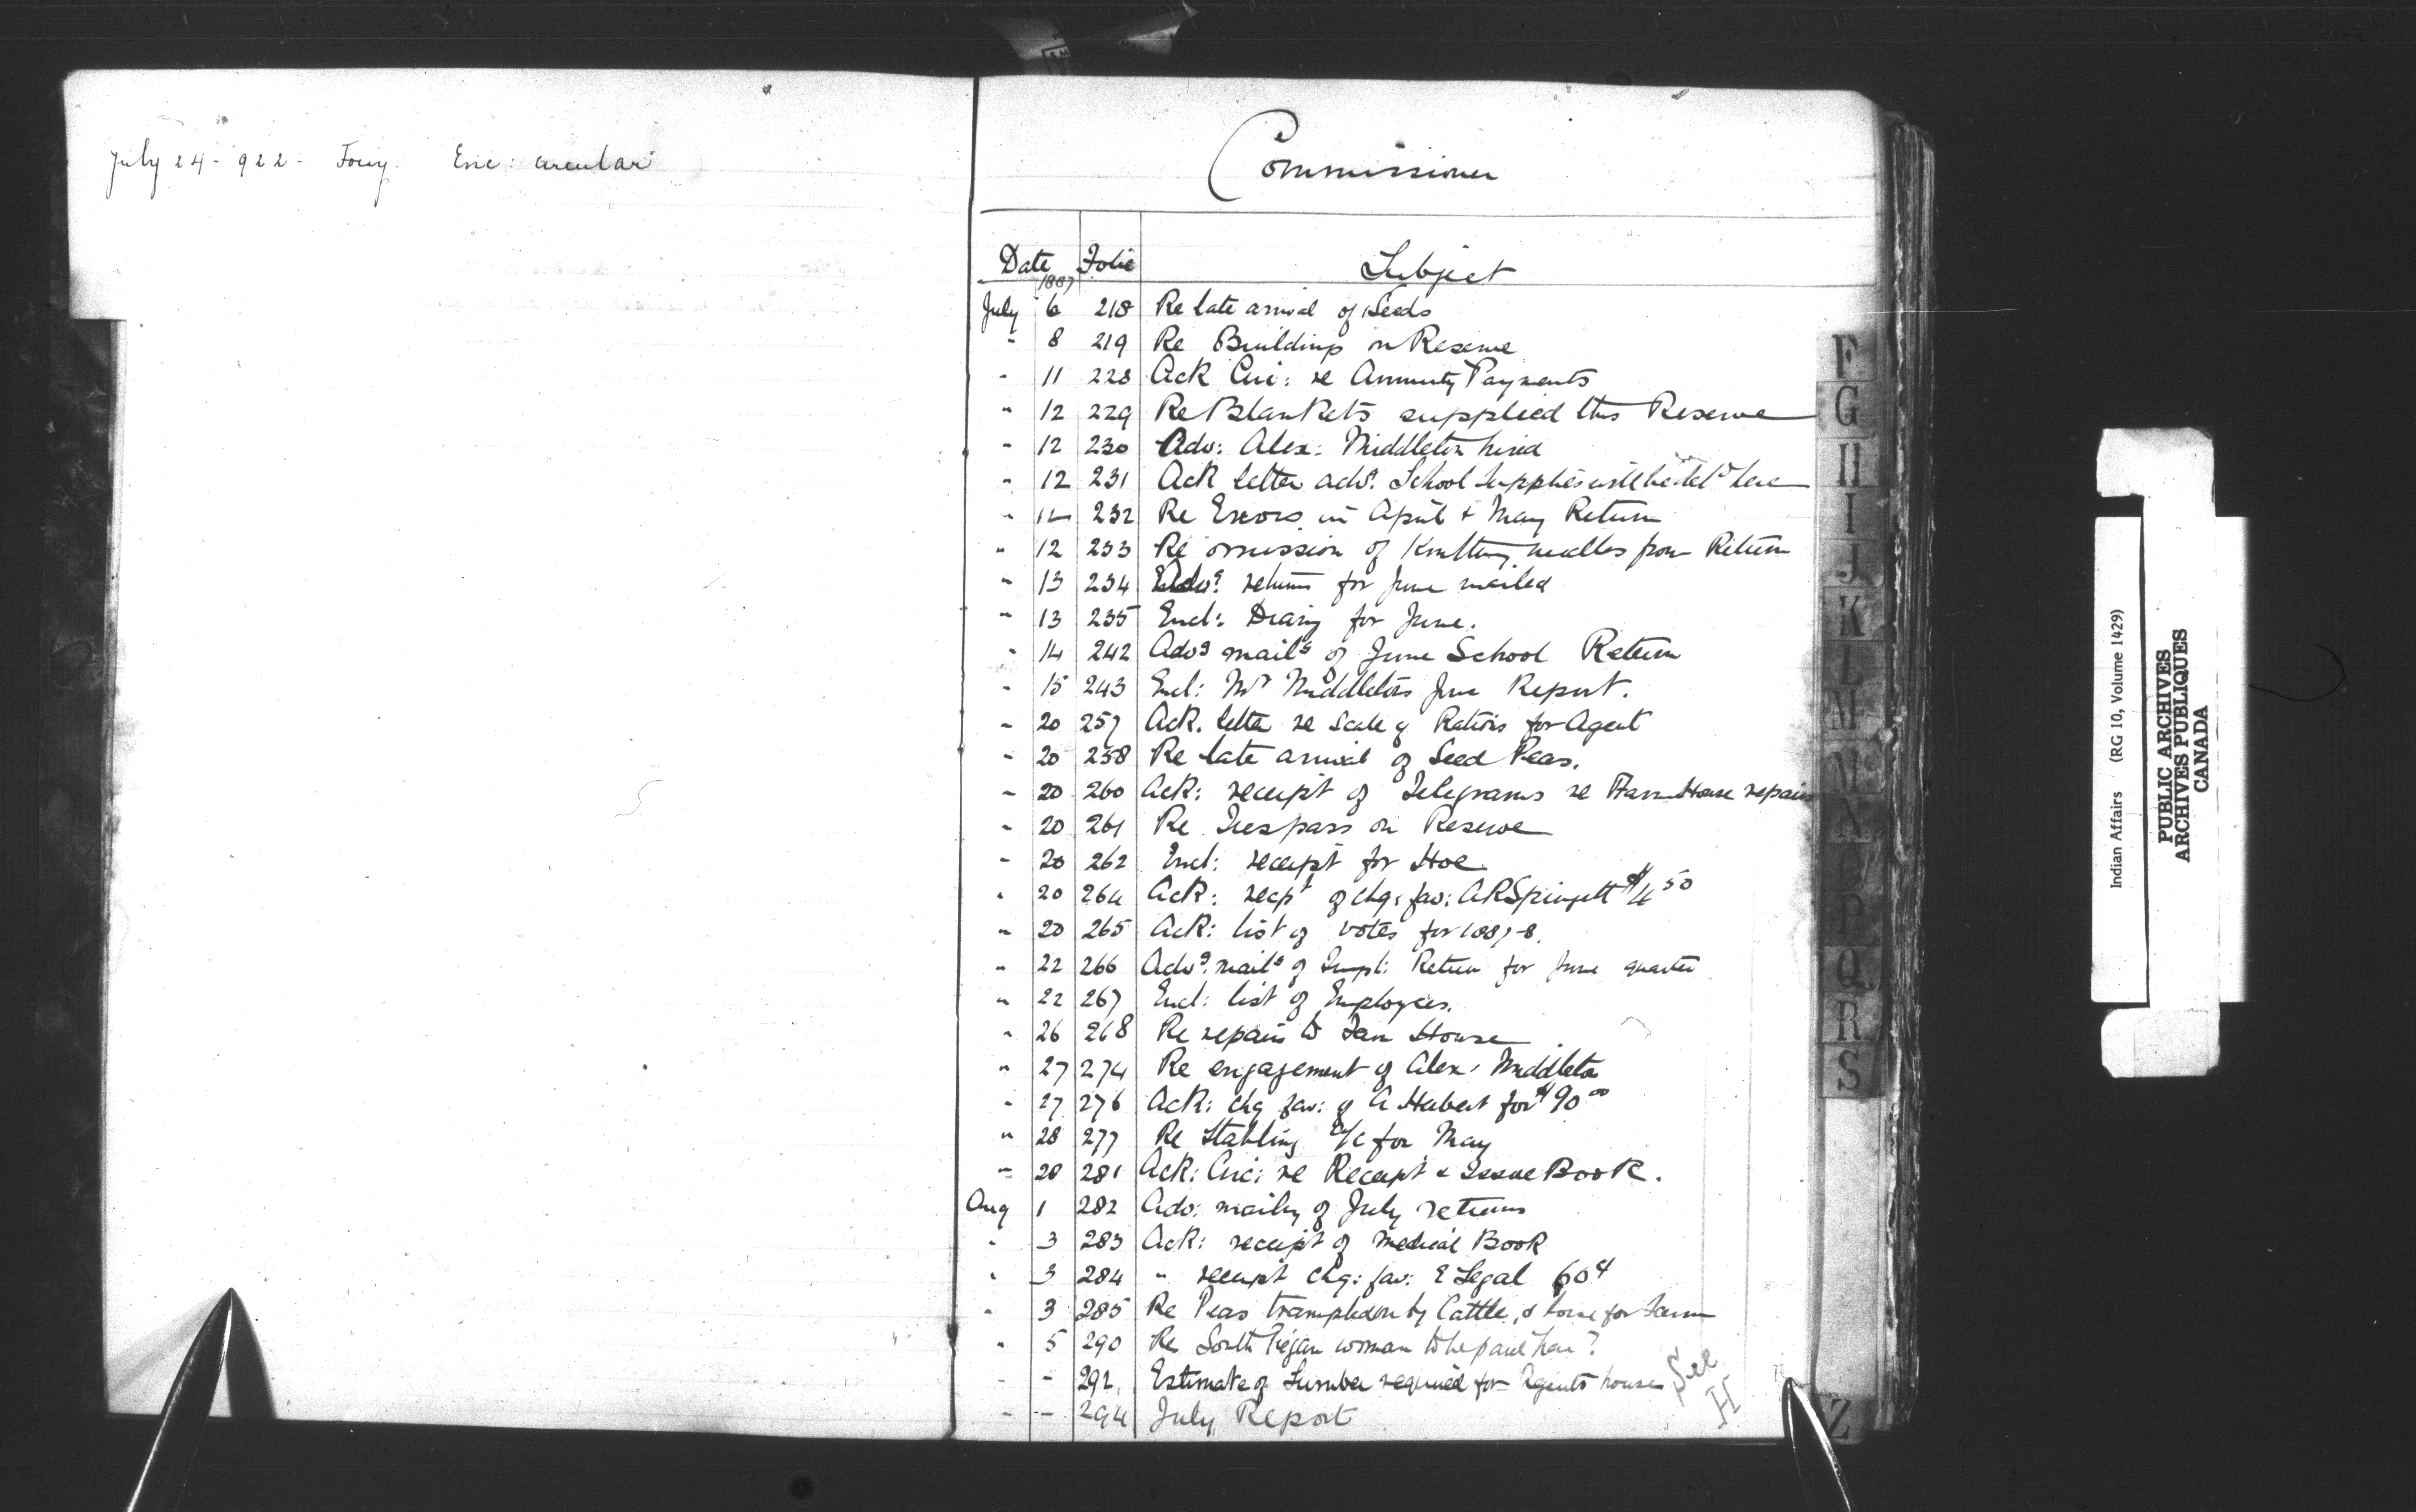 July 24 - 922 - Forwg. Enc: circular
Commissioner
Date Folio Subject
1887
July 6 218 Re late arrival of Seeds
" 8 219 Re Buildings on Reserve
" 11 228 Ack Circ: re Annuity Payments
" 12 229 Re Blankets supplied this Reserve
" 12 230 Adv: Alex: Middleton hired
" 12 231 Ack letter advg. School Supplies will be deld here
" 12 232 Re Errors in April & May Return
" 12 233 Re omission of Knitting needles from Return
" 13 234 Advg returns for June mailed
" 13 235 Encl: Diary for June.
" 14 242 Advg mailg of June School Return
" 15 243 Encl: Mr Middletons June Report.
" 20 257 Ack. letter re Scale of Rations for Agent
" 20 258 Re late arrival of Seed Peas.
" 20 260 Ack: receipt of Telegrams re Farm House repairs
" 20 261 Re Trespass on Reserve
" 20 262 Encl: receipt for Hoe
" 20 264 Ack: recpt of chq: fav: A R Springett $4 50
" 20 265 Ack: list of votes for 1887-8.
" 22 266 Advg. mailg of Impl: Return for June quarter
" 22 267 Encl: list of Employees.
" 26 268 Re repairs to Farm House
" 27 274 Re engagement of Alex: Middleton
" 27 276 Ack: chq fav: of A Hebert for $90 00
" 28 277 Re Stabling a/c for May
" 28 281 Ack: Circ: re Receipt & Issue Book.
Aug 1 282 Adv: mailing of July returns
" 3 283 Ack: receipt of Medical Book
" 3 284 " receipt chq: fav: E Legal 60
" 3 285 Re Peas trampled on by Cattle, & horse for Farm
" 5 290 Re South Piegan woman to be paid here?
" " 292 Estimate of Lumber required for Agents house
" " 294 July Report
See
H
F
G
H
I
J
K
L
M
Mc
N
O
P
Q
R
S
Z
Indian Affairs (RG 10, Volume 1429)
PUBLIC ARCHIVES
ARCHIVES PUBLIQUES
CANADA